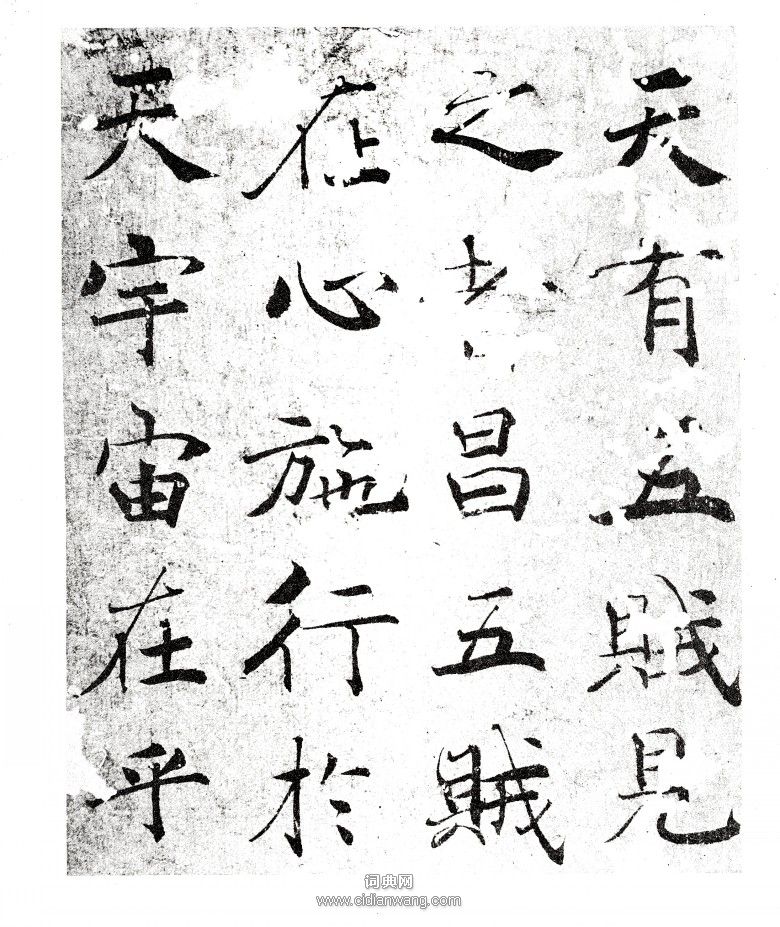 天有五賊見
之者昌五賊
在心施行於
天宇宙在乎
词典网
www.cidianwang.com